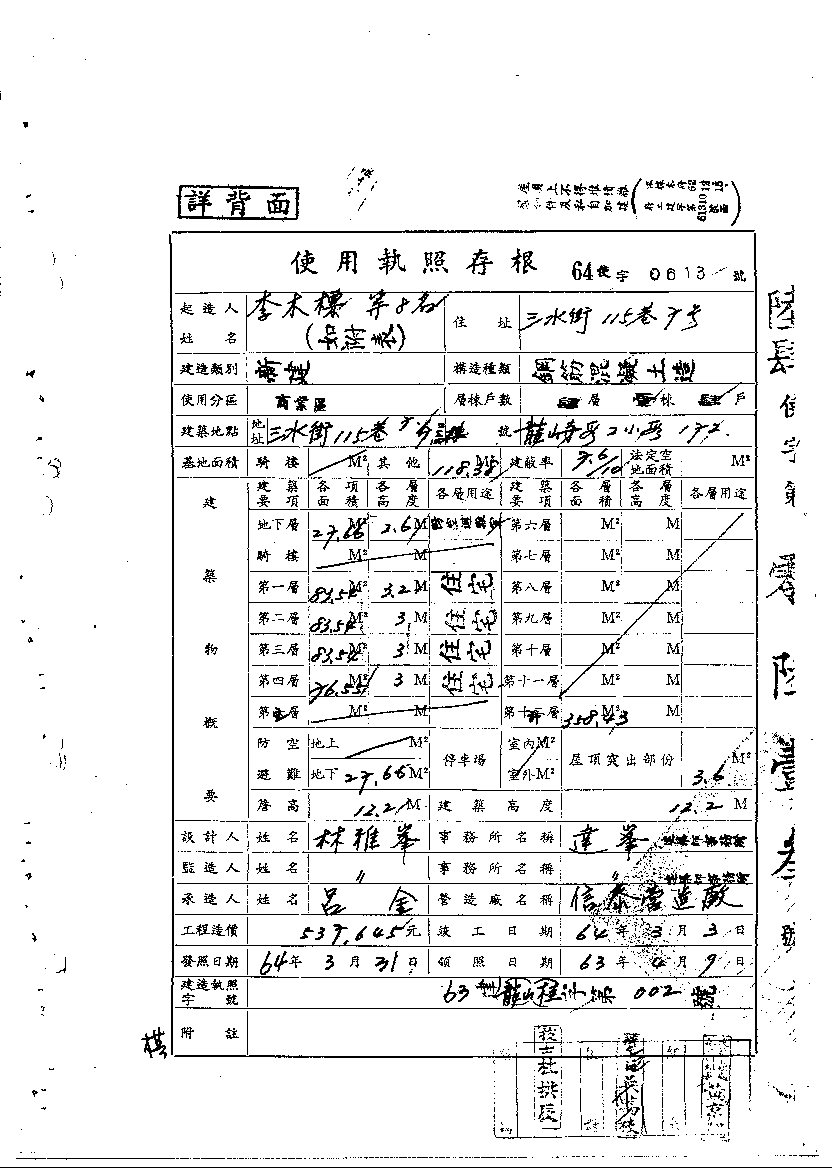 詳背面
使用執照存根 64使字0613號
起造人姓名 李木樓等8名(如附表) 住址 三水街115巷7号
建造類別 新建 構造種類 鋼筋混凝土造
使用分區 商業區 層棟戶數 層 棟 戶
建築地點 地址 三水街115巷7 號
基地面積 騎樓 M² 其他 118.38 建蔽率 7.6/10 法定空地面積 M²
建築物概要 建築要項 各項面積 各層高度 各層用途 建築要項 各層面積 各層高度 各層用途
地下層 27.66 M² 2.6 M 第六層 M² M
騎樓 M² 第七層 M² M
第一層 83.54 M² 3.2 M 住宅 第八層 M² M
第二層 83.54 M² 3 M 住宅 第九層 M² M
第三層 83.54 M² 3 M 住宅 第十層 M² M
第四層 76.55 M² 3 M 住宅 第十一層 M² M
第五層 M² M 358.43 M
防空避難 地上 M² 停車場 室內M² 屋頂突出部份 3.6 M²
地下 27.66 M² 室外M²
簷高 12.2 M 建築高度 12.2 M
設計人 姓名 林雅峯 事務所名稱 建峯
監造人 姓名 〃 事務所名稱 〃
承造人 姓名 呂金 營造廠名稱 信泰營造廠
工程造價 537,645元 竣工日期 64年3月3日
發照日期 64年3月31日 領照日期 63年4月9日
建造執照字號 63建 002號
附註
陸肆使字第零陸壹叁號